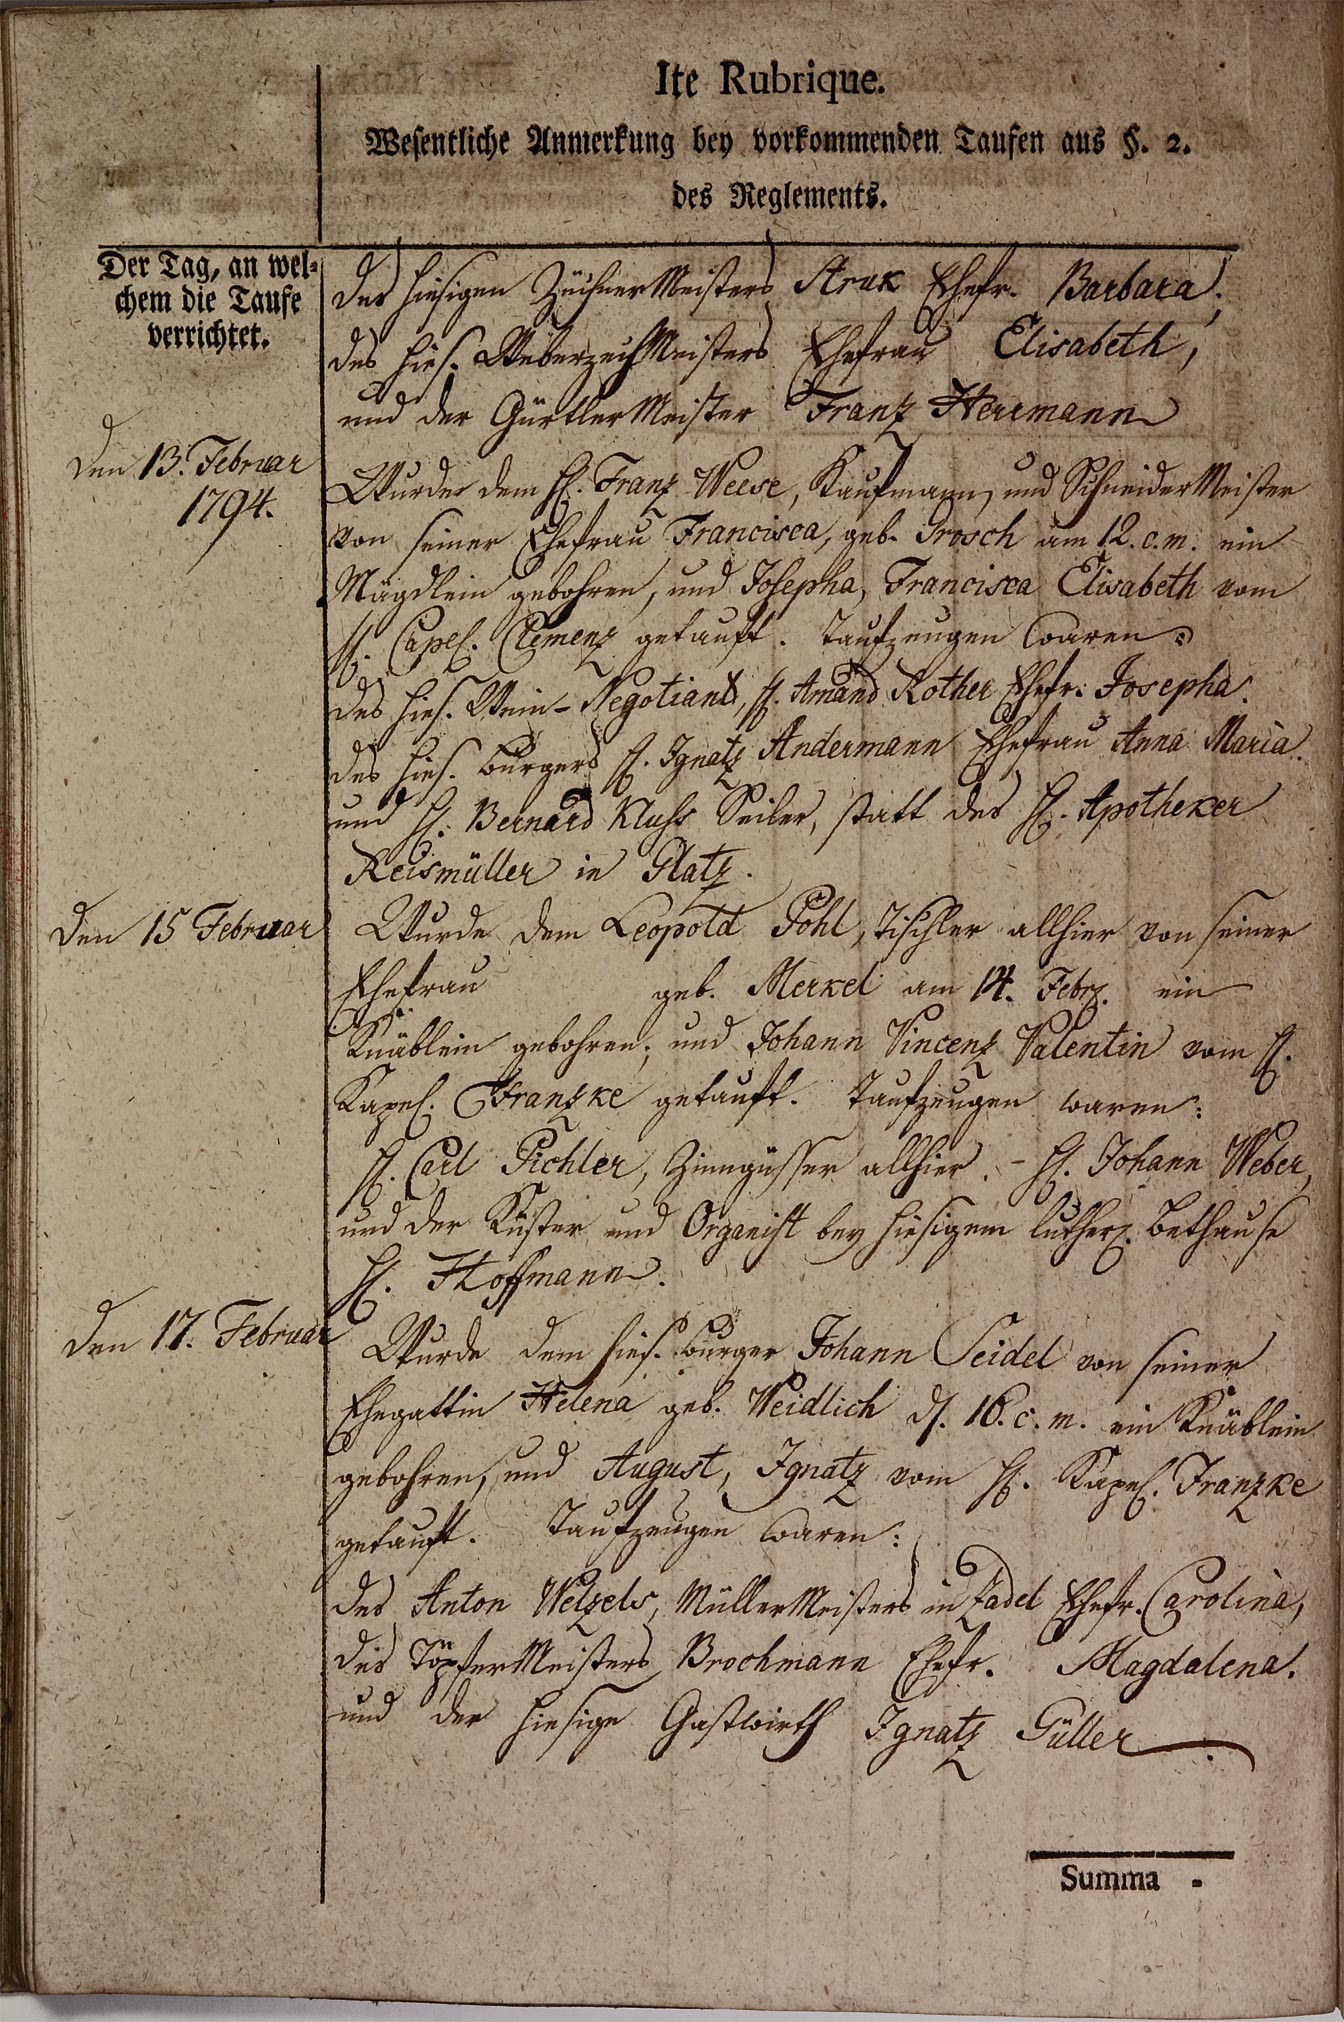 Ite Rubrique.
Wesentliche Anmerkung bey vorkommenden Taufen aus §. 2.
des Reglements.
Der Tag, an wel-
chem die Taufe
verrichtet.
des hiesigen ZüchnerMeisters Struk Ehefr. Barbara,
des hies. Meisters Ehefrau Elisabeth,
und der GürtlerMeister Franz Herrmann
den 13. Februar
1794.
Wurde dem H. Franz Weese, Kaufmann, und SchneiderMeister
von seiner Ehefrau Francisca, geb. Prosch am 12. c. m. ein
Mägdlein gebohren, und Josepha, Francisca Elisabeth vom
H. Capel. Clemenz getauft. Taufzeugen waren:
des hies. Wein-Negotiants, H. Amand Rother Ehefr. Josepha.
des hies. Burgers H. Ignatz Andermann Ehefrau Anna Maria.
und H. Bernard Kluhs Seiler, statt des H. Apotheker
Reismüller in Glatz.
den 15 Februar
Wurde dem Leopold Pohl, Tischler allhier von seiner
Ehefrau geb. Merkel am 14. Febr. ein
Knäblein gebohren, und Johann Vincenz Valentin vom H.
Kapel. Franzke getauft. Taufzeugen waren:
H. Carl Pichler, Zinngüsser allhier. - H. Johann Weber,
und der Küster und Organist bey hiesigem luther. Bethause
H. Hoffmann.
den 17. Februar
Wurde dem hies. Burger Johann Seidel von seiner
Ehegattin Helena geb. Weidlich d. 16. c. m. ein Knäblein
gebohren, und August, Ignatz vom H. Kapel. Franzke
getauft. Taufzeugen waren:
des Anton Welzels, MüllerMeisters in Zadel Ehefr. Carolina,
des TöpferMeisters Brochmann Ehefr. Magdalena.
und der hiesige Gastwirth Ignatz Güller.
Summa -